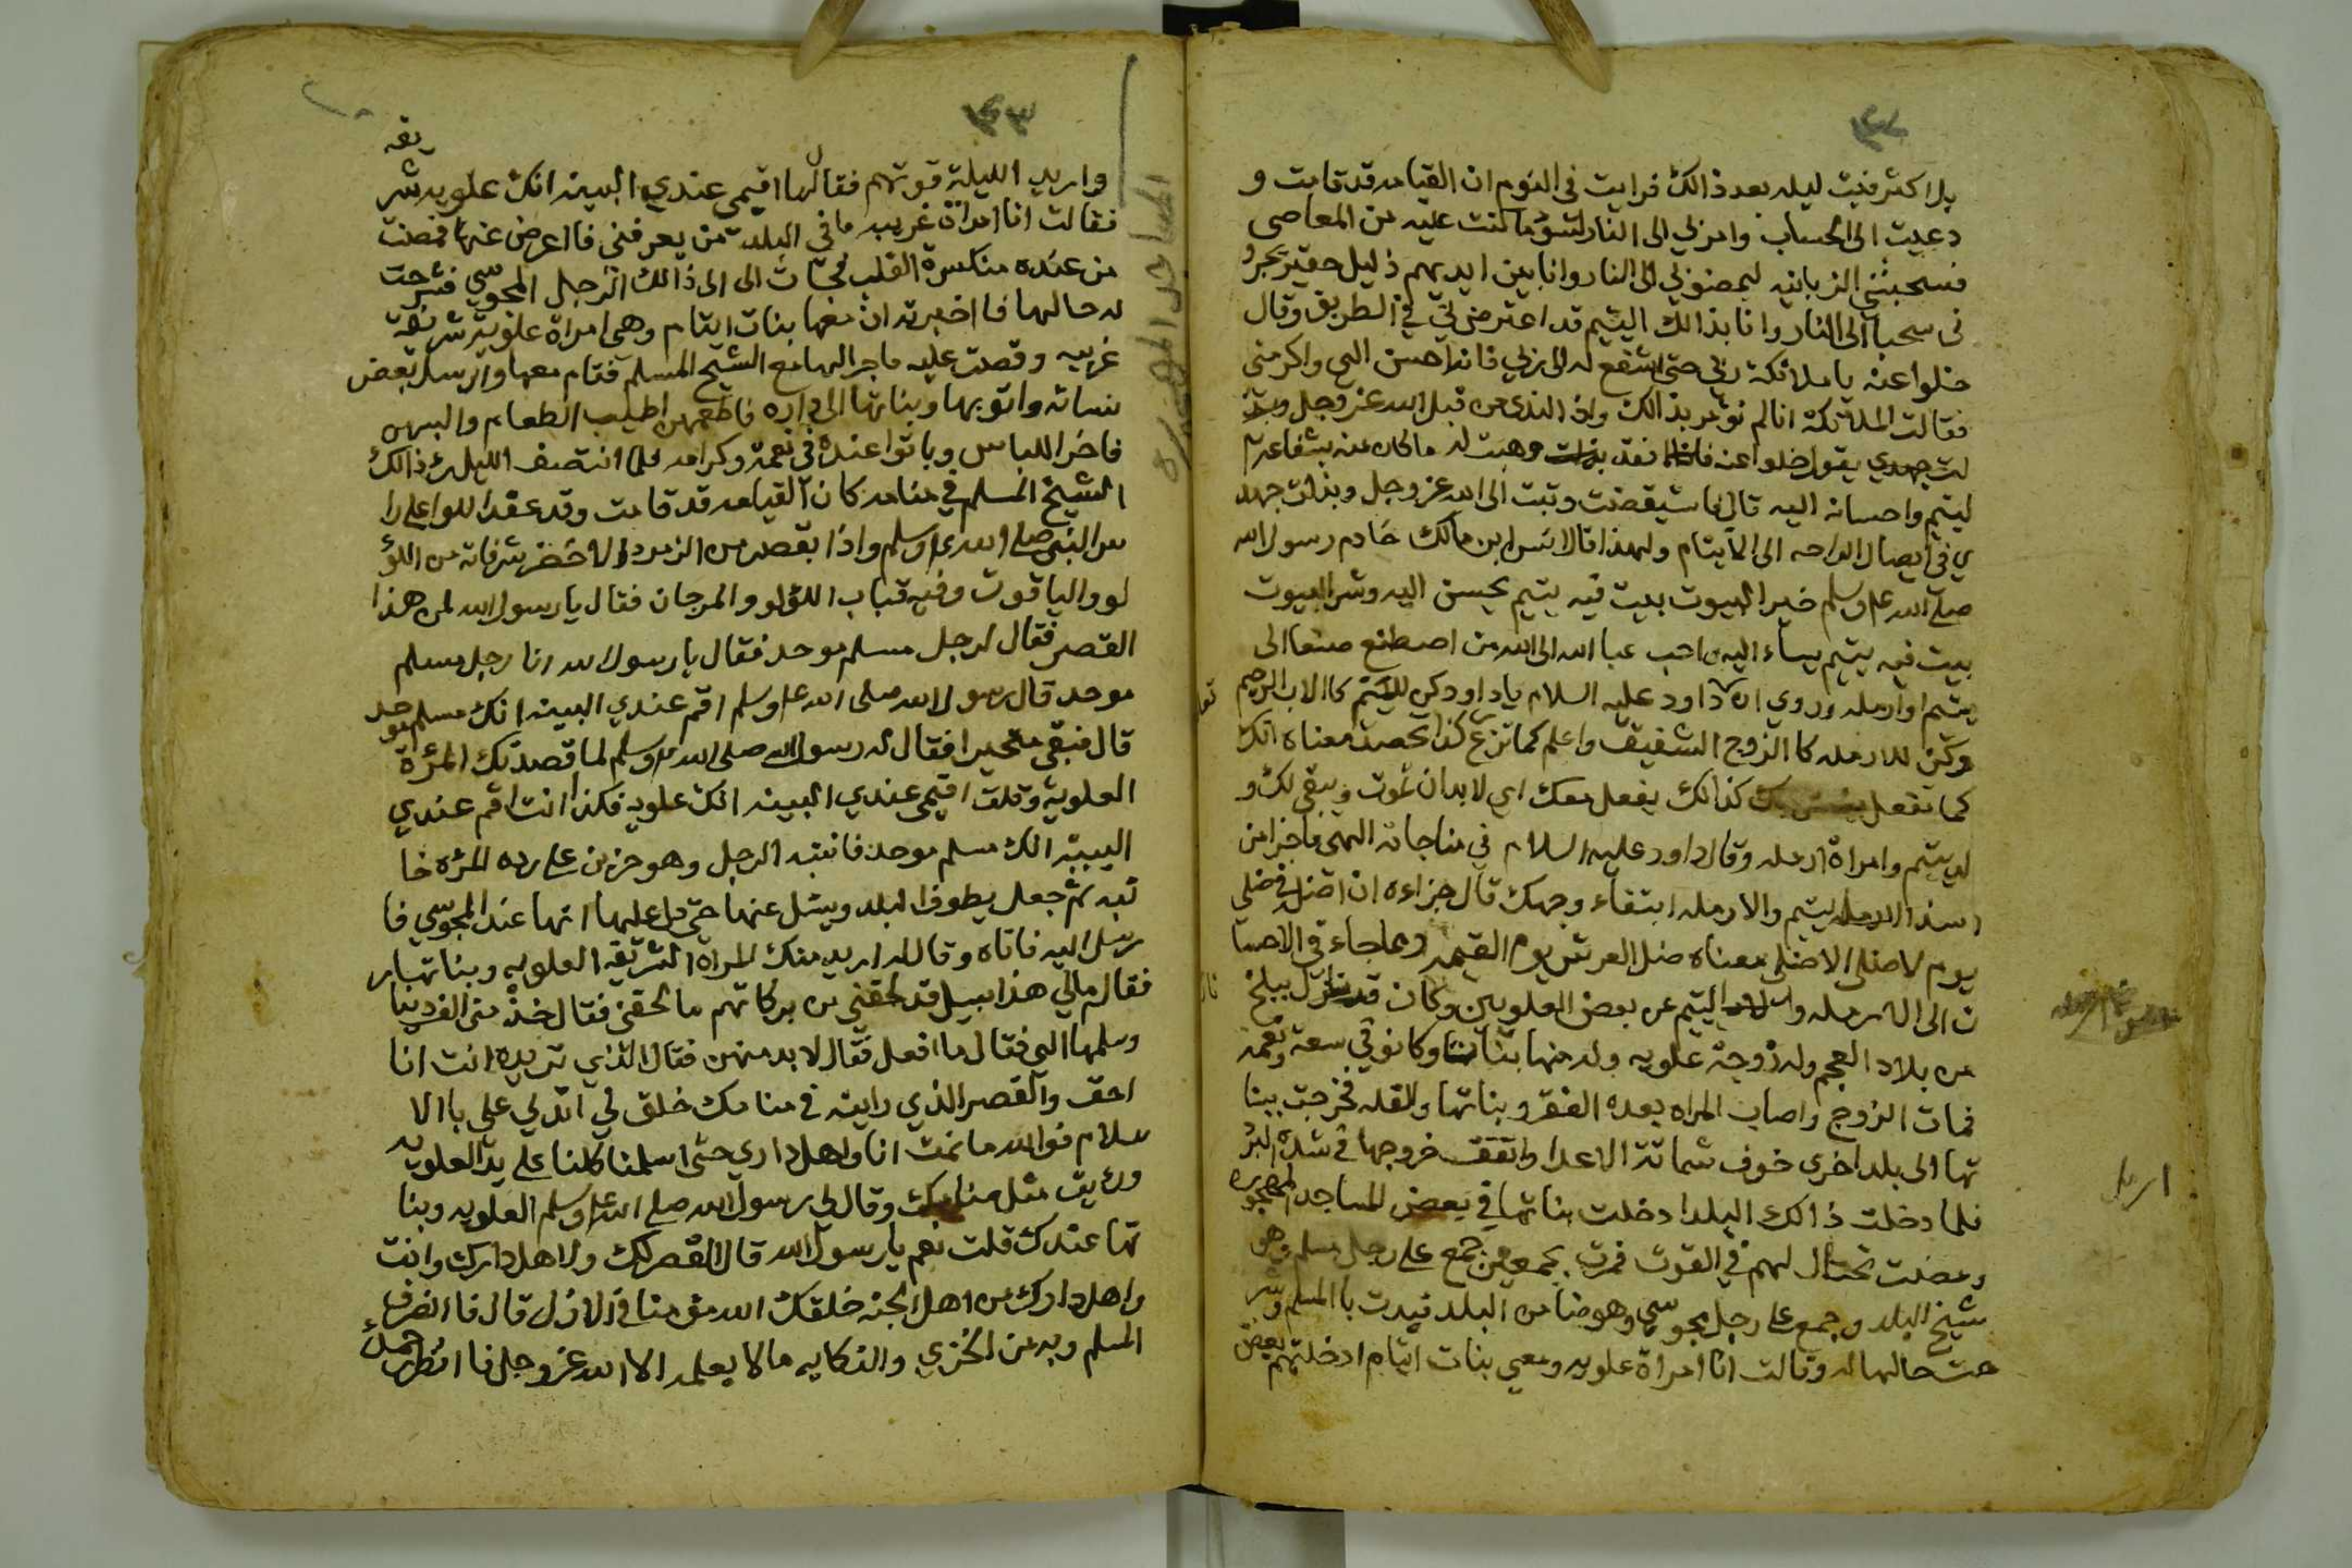 يلا كثر فنمت ليله بعد ذالك فرايت في النوم ان القيامه قد قامت و
دعيت الى الحساب وامر بي الى النار لسوء ما كنت عليه من المعاصي
فسحبتني الزبانيه ليمضو بي الى النار وانا بين ايديهم ذليل حقير يجرو
ني سحبا الى النار وانا بذالك اليتيم قد اعترض لي في الطريق وقال
خلوا عنه يا ملائكة ربي حتى اشفع له الى ربي فانه احسن الي واكرمني
فقالت الملائكة انا لم نؤمر بذالك واذ الندى من قبل الله عز وجل
يقول خلوا عنه فقد وهبت له ما كان منه بشفاعة
ليتيم واحسانه اليه قال فاستيقضت وتبت الى الله عز وجل وبذلت جهد
ي في ايصال الراحه الى الايتام ولهذا قال انس ابن مالك خادم رسول الله
صلى الله عليه وسلم خير البيوت بيت فيه يتيم يحسن اليه وشر البيوت
بيت فيه يتيم يساء اليه واحب عبا الله الى الله من اصطنع صنعا الى
يتيم او ارمله وروي ان داود عليه السلام يا داود كن لليتيم كا الاب الرحيم
وكن للارمله كا الزوج الشفيق واعلم كما تزرع كذا تحصد معناه انك
كما تفعل كذالك يفعل معك اي لا بد ان تموت ويبقى لك و
لد يتيم وامراة ارمله وقال داود عليه السلام في مناجاته الهي ما جزا من
اسند اليتيم والارمله ابتغاء وجهك قال جزاءه ان اظله في ظلي
يوم لا ظل الا ظلي معناه ظل العرش يوم القيمه ومما جاء في الاحسا
ن الى الارمله و اليتيم عن بعض العلويين وكان قد نازل ببلخ
من بلاد العجم وله زوجة علويه وله منها بنات وكانو في سعة ونعمه
فمات الزوج واصاب المراه بعده الفقر وبناتها والقله فخرجت ببنا
تها الى بلد اخرى خوف شماتة الاعدا واتفق خروجها في شدة البرد
فلما دخلت ذالك البلد ادخلت بناتها في بعض المساجد المهجوره
ومضت تحتال لهم في القوت فمرت بجمعين جمع على رجل مسلم وهو
شيخ البلد وجمع على رجل مجوسي وهو ضامن البلد فبدت با المسلم وشر
حت حالها له وقالت انا امراة علويه ومعي بنات ايتام ادخلتهم بعض
واريد الليلة قوتهم فقال لها اقيمي عندي البينه انك علويه شريفه
فقالت انا امراة غريبه ما في البلد من يعرفني فاعرض عنها فمضت
من عنده منكسرة القلب فجات الى الى ذالك الرجل المجوسي فشرحت
له حالها فا اخبرته ان معها بنات ايتام وهي امراة علوية شريفه
غريبه وقصت عليه ما جرا لها مع الشيخ المسلم فقام معها وارسل بعض
نسائه واتو بها وبناتها الى داره فاطعمهن اطيب الطعام والبسهن
فاخر اللباس وباتوا عنده في نعمة وكرامه فلما انتصف الليل رء ذالك
الشيخ المسلم في منامه كان القيامه قد قامت وقد عقد اللوا على را
س النبي صلى الله عليه وسلم واذا بقصر من الزمرد الاخضر شرفاته من اللؤ
لو والياقوت وفيه قباب اللؤلو والمرجان فقال يا رسول الله لمن هذا
القصر فقال لرجل مسلم موحد فقال يا رسول الله انا رجل مسلم
موحد قال رسول الله صلى الله عليه وسلم اقم عندي البينه انك مسلم موحد
قال فبقى متحيرا فقال له رسول الله صلى الله عليه وسلم لما قصدتك المرءة
العلوية وقلت اقيمي عندي البينه انك علويه فكذا انت اقم عندي
البينه انك مسلم موحد فانتبه الرجل وهو حزين على رده المرءه خا
ئبه ثم جعل يطوف البلد ويسئل عنها حتى دل عليها انها عند المجوسي فا
رسل اليه فاتاه وقال له اريد منك المراه الشريفه العلويه وبناتها
فقال مالي هذا سبيل قد لحقني من بركاتهم ما لحقني فقال خذ مني الف دينا
وسلمها الي فقال ما افعل فقال لا بد منهن فقال الذي تريده انت انا
احق والقصر الذي رايته في منامك خلق لي اتدلي علي با الا
سلام فو الله ما نمت انا واهل داري حتى اسلمنا كلنا على يد العلويه
ورءيت مثل منامك وقال لي رسول الله صلى الله عليه وسلم العلويه وبنا
تها عندك قلت نعم يا رسول الله قال القصر لك ولاهل دارك وانت
واهل دارك من اهل الجنه خلقك الله مؤمنا في الازل قال فا انصرف
المسلم وبه من الخزي والنكايه ما لا يعلمه الا الله عز وجل فا انظر